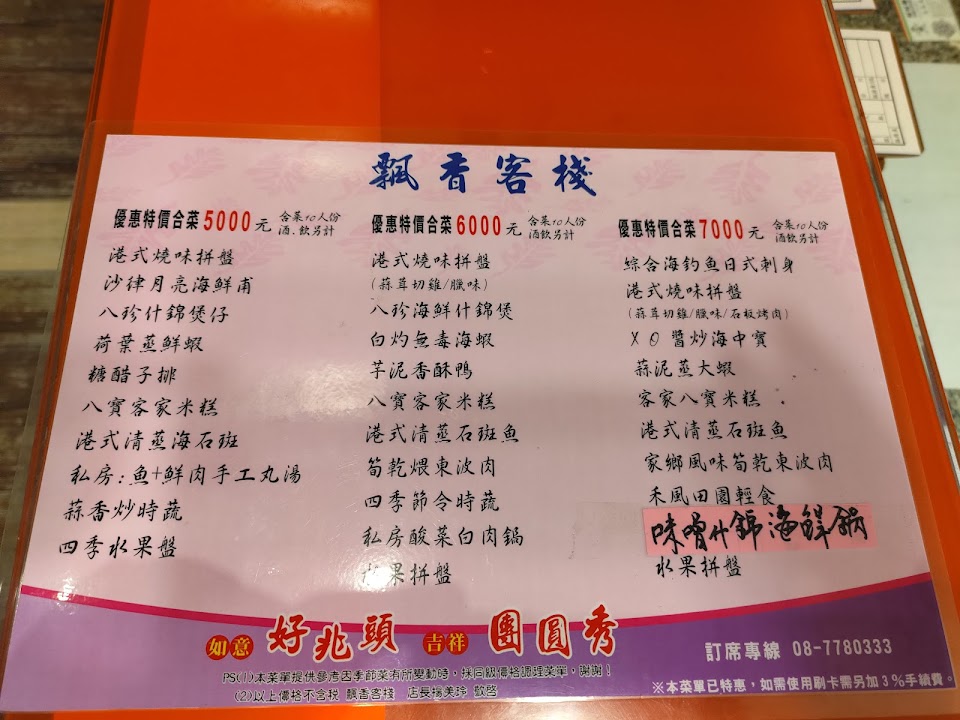 飄香客棧
優惠特價合菜5000元 含菜10人份
酒.飲另計
港式燒味拼盤
沙律月亮海鮮甫
八珍什錦煲仔
荷葉蒸鮮蝦
糖醋子排
八寶客家米糕
港式清蒸海石斑
私房:魚+鮮肉手工丸湯
蒜香炒時蔬
四季水果盤
優惠特價合菜6000元 含菜10人份
酒飲另計
港式燒味拼盤
(蒜茸切雞/臘味)
八珍海鮮什錦煲
白灼無毒海蝦
芋泥香酥鴨
八寶客家米糕
港式清蒸石斑魚
筍乾煨東波肉
四季節令時蔬
私房酸菜白肉鍋
水果拼盤
優惠特價合菜7000元 含菜10人份
酒飲另計
綜合海釣魚日式刺身
港式燒味拼盤
(蒜茸切雞/臘味/石板烤肉)
XO醬炒海中寶
蒜泥蒸大蝦
客家八寶米糕
港式清蒸石斑魚
家鄉風味筍乾東波肉
禾風田園輕食
味噌什錦海鮮鍋
水果拼盤
如意 好兆頭 吉祥 團圓秀
訂席專線 08-7780333
PS(1)本菜單提供參考因季節菜有所變動時，採同級價格調理菜單，謝謝！
(2)以上價格不含稅 飄香客棧 店長楊美玲 敬啓
※本菜單已特惠，如需使用刷卡需另加3%手續費。